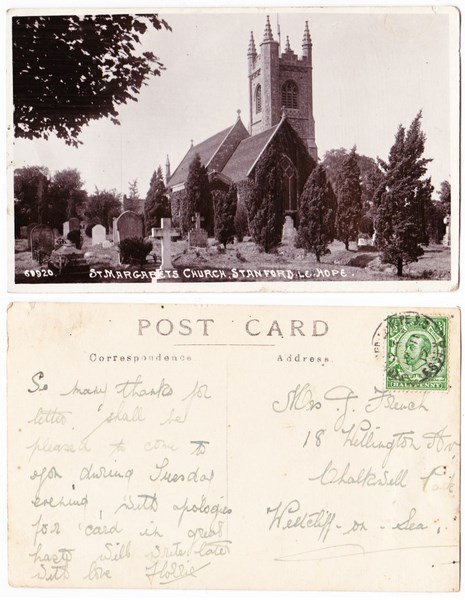 68920
ST. MARGARETS CHURCH. STANFORD. LE. HOPE.
POST CARD
Correspondence
Address.
So many thanks for
letter shall be
pleased to come to
you during Tuesday
evening, with apologies
for card in great
haste will write later
with love Hollie
Mrs J. French
18 Wellington Av
Chalkwell Park
Westcliff-on-Sea
HALFPENNY